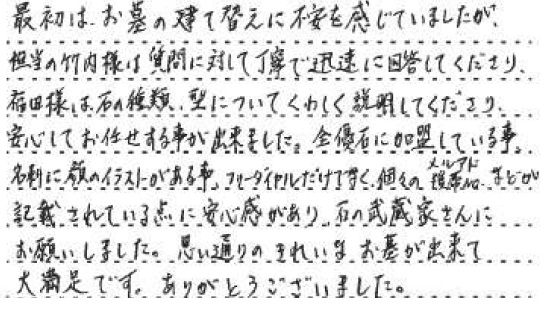 最初は、お墓の建て替えに不安を感じていましたが、
担当の竹内様は質問に対して丁寧で迅速に回答してくださり、
荷田様は、石の種類、型についてくわしく説明してくださり、
安心してお任せする事が出来ました。全優石に加盟している事、
名刺に顔のイラストがある事、フリーダイヤルだけで無く、個々のメルアド携帯No.などが
記載されている点に安心感があり、石の武蔵家さんに
お願いしました。思い通りのきれいなお墓が出来て
大満足です。ありがとうございました。